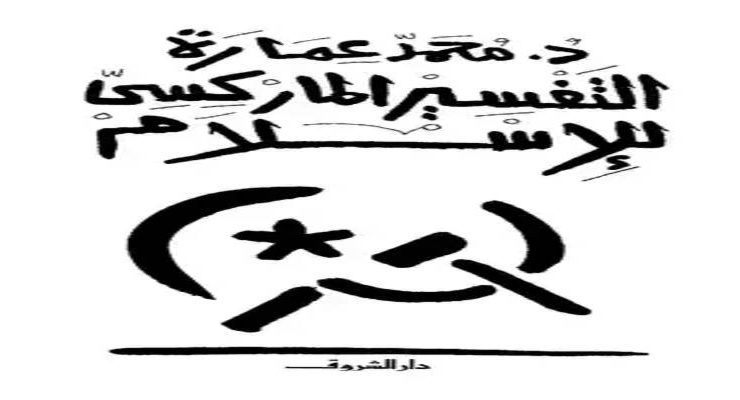 د. محمد عمارة
التفسير الماركسى
للإسلام
دار الشروق